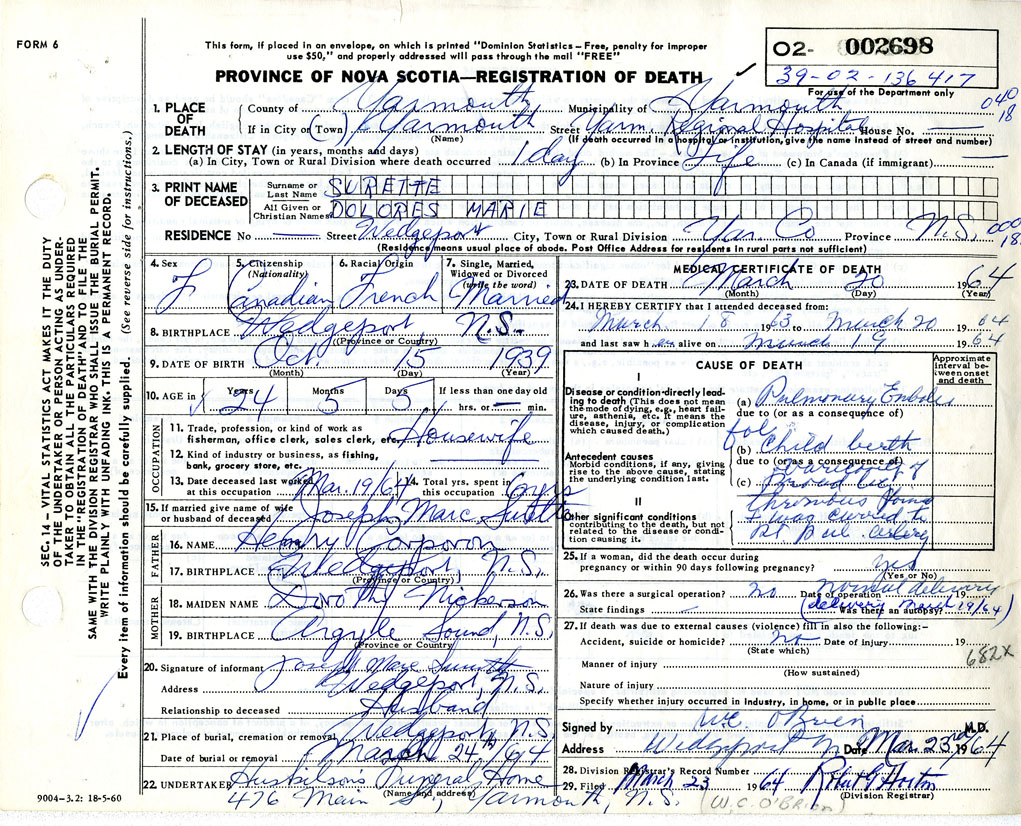 FORM 6
This form, if placed in an envelope, on which is printed "Dominion Statistics – Free, penalty for improper
use $50," and properly addressed will pass through the mail "FREE"
PROVINCE OF NOVA SCOTIA—REGISTRATION OF DEATH
02- 002698
39-02-136417
For use of the Department only
040
18
1. PLACE OF DEATH
County of Yarmouth Municipality of Yarmouth
If in City or (Town) Yarmouth Street Yarm. Regional Hospital House No. —
(Name) (If death occurred in a hospital or institution, give the name instead of street and number)
2. LENGTH OF STAY (in years, months and days)
(a) In City, Town or Rural Division where death occurred 1 day (b) In Province Life (c) In Canada (if immigrant) —
3. PRINT NAME OF DECEASED
Surname or Last Name SURETTE
All Given or Christian Names DOLORES MARIE
RESIDENCE No — Street Wedgeport City, Town or Rural Division Yar. Co Province N.S.
000
18
(Residence means usual place of abode. Post Office Address for residents in rural parts not sufficient)
4. Sex F
5. Citizenship (Nationality) Canadian
6. Racial Origin French
7. Single, Married, Widowed or Divorced (write the word) Married
8. BIRTHPLACE Wedgeport, N.S.
(Province or Country)
9. DATE OF BIRTH Oct. 15 1939
(Month) (Day) (Year)
10. AGE in Years 24 Months 5 Days 5 If less than one day old
hrs. or — min.
OCCUPATION
11. Trade, profession, or kind of work as
fisherman, office clerk, sales clerk, etc. Housewife
12. Kind of industry or business, as fishing,
bank, grocery store, etc. —
13. Date deceased last worked at this occupation Mar. 19/64 14. Total yrs. spent in this occupation 6 yrs
15. If married give name of wife
or husband of deceased Joseph Marc Surette
FATHER
16. NAME Henry Corporon
17. BIRTHPLACE Wedgeport, N.S.
(Province or Country)
MOTHER
18. MAIDEN NAME Dorothy Nickerson
19. BIRTHPLACE Argyle Sound, N.S.
(Province or Country)
20. Signature of informant Joseph Marc Surette
Address Wedgeport, N.S.
Relationship to deceased Husband
21. Place of burial, cremation or removal Wedgeport, N.S.
Date of burial or removal March 24th 64
22 UNDERTAKER Huskilson's Funeral Home
(Name and address)
476 Main St, Yarmouth, N.S.
MEDICAL CERTIFICATE OF DEATH
23. DATE OF DEATH March 20 1964
(Month) (Day) (Year)
24. I HEREBY CERTIFY that I attended deceased from:
March 18 1963 to March 20 1964
and last saw her alive on March 19 1964
CAUSE OF DEATH
Approximate interval between onset and death
I
Disease or condition directly leading to death (This does not mean the mode of dying, e.g., heart failure, asthenia, etc. It means the disease, injury, or complication which caused death.)
(a) Pulmonary Embolus
due to (or as a consequence of)
fol
(b) Child berth
due to (or as a consequence of)
Antecedent causes
Morbid conditions, if any, giving rise to the above cause, stating the underlying condition last.
(c)
II
Other significant conditions
contributing to the death, but not related to the disease or condition causing it.
25. If a woman, did the death occur during
pregnancy or within 90 days following pregnancy? yes
(Yes or No)
26. Was there a surgical operation? no Date of operation Normal delivery
State findings — Was there an autopsy?
(delivery March 19/64)
27. If death was due to external causes (violence) fill in also the following:-
Accident, suicide or homicide? no Date of injury 19
(State which)
682X
Manner of injury
(How sustained)
Nature of injury
Specify whether injury occurred in industry, in home, or in public place
Signed by W.C. O'Brien M.D.
Address Wedgeport Date Mar. 23rd 1964
28. Division Registrar's Record Number
29. Filed March 23 1964 Robert G Horton
(Division Registrar)
(W.C. O'Brien)
SEC. 14 – VITAL STATISTICS ACT MAKES IT THE DUTY
OF THE UNDERTAKER OR PERSON ACTING AS UNDERTAKER
TO OBTAIN ALL THE PARTICULARS REQUIRED
IN THE "REGISTRATION OF DEATH" AND TO FILE THE
SAME WITH THE DIVISION REGISTRAR WHO SHALL ISSUE THE BURIAL PERMIT.
WRITE PLAINLY WITH UNFADING INK. THIS IS A PERMANENT RECORD.
Every item of information should be carefully supplied. (See reverse side for instructions.)
9004-3.2: 18-5-60